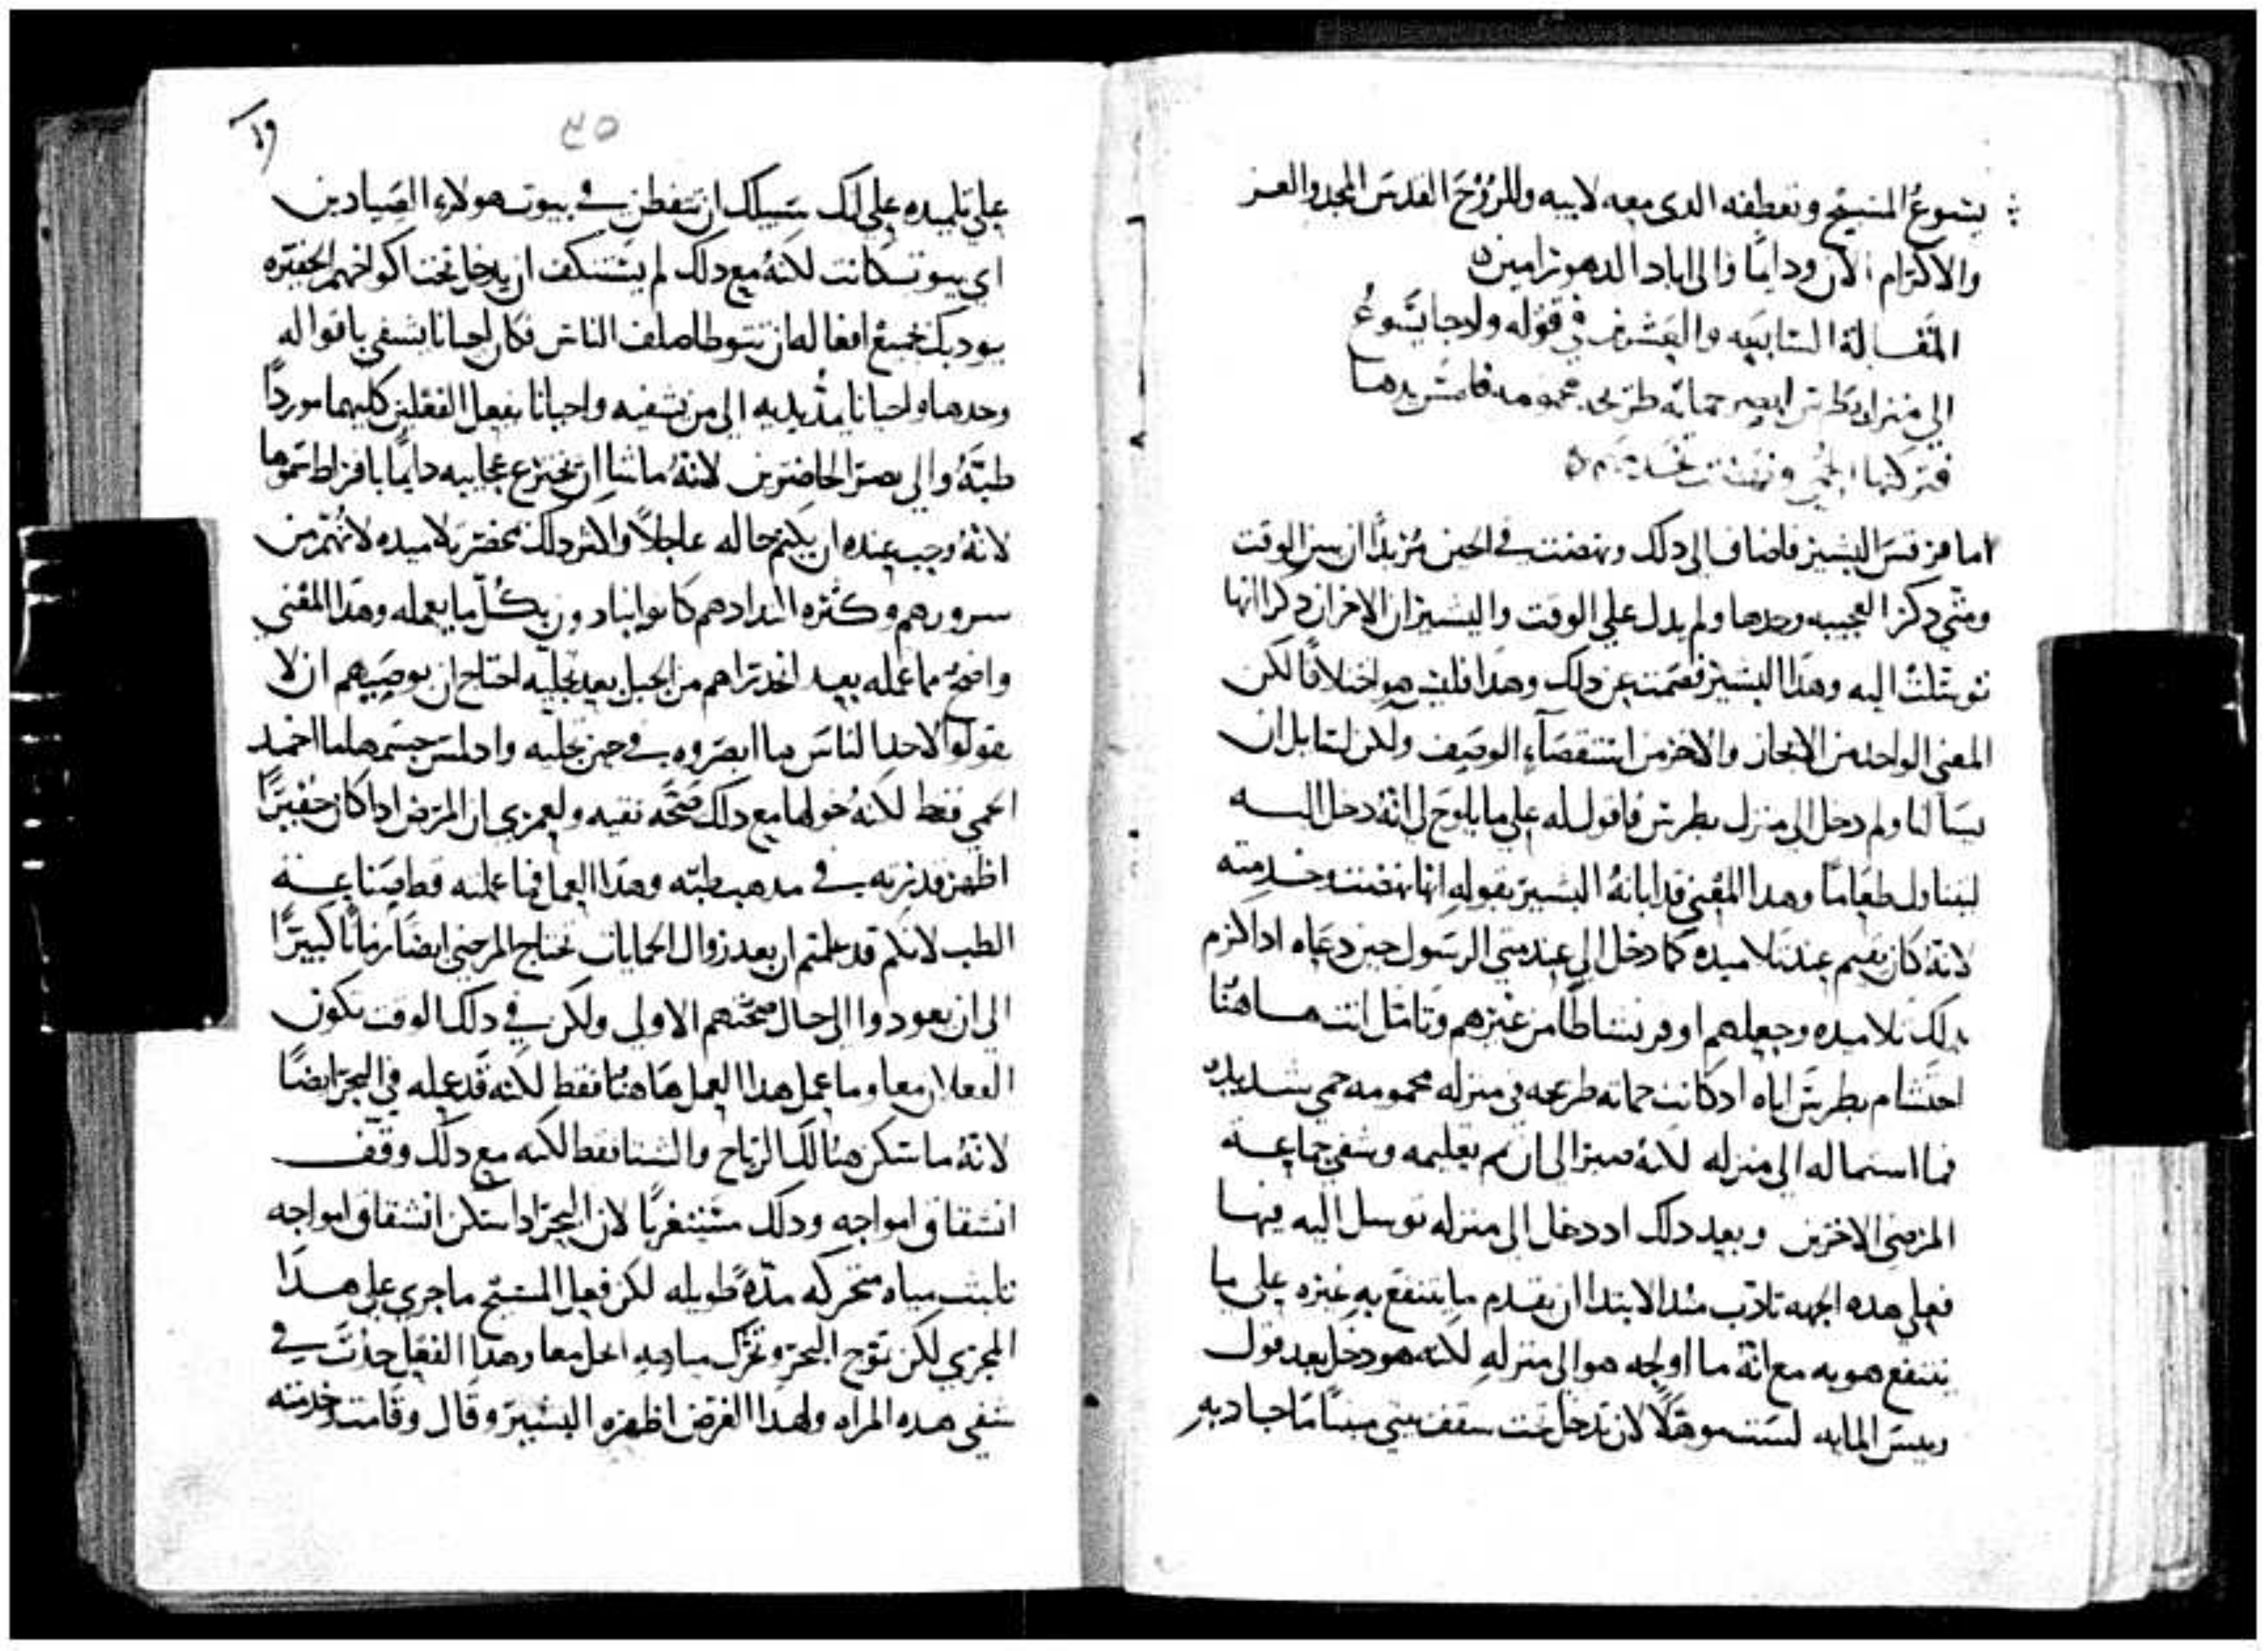 يسوع المسيح وتعطفه الدى معه لابيه وللروح القدس المجد والعز
والاكرام الان ودايما والى اباد الدهور امين
المقالة السابعه والعشرون في قوله ولما جا يسوع
الي منزل بطرس ابصر حماته طريحه محمومه فامس يدها
فتركتها الحمي ونهضت تخدمهم
اما مرقس البشير فاضاف الى دلك ونهضت في الحين مريدا ان يبين الوقت
ومتي دكر العجيبه وحدها ولم يدل علي الوقت والبشيران الاخران دكرا انها
توسلت اليه وهدا البشير فصمت عن دلك وهدا فليس هو اختلافا لكن
المعني الواحد من الايجاز والاخر من استقصاء الوصف ولكن لسايل ان
يسالنا ولم دخل الى منزل بطرس فاقول له علي ما يلوح لي انه دخل اليه
ليتناول طعاما وهدا المعني قد ابانه البشير بقوله انها نهضت وخدمته
لانه كان يقيم عند تلاميده كما دخل الي عند متي الرسول حين دعاه ادا اكرم
بدلك تلاميده وجعلهم اوفر نشاطا من غيرهم وتامل انت هاهنا
احتشام بطرس اياه اد كانت حماته طريحه في منزله محمومه حمي شديده
فما استماله الي منزله لانه صبر الى ان تم تعليمه وشفي جماعة
المرضي الاخرين وبعد دلك اد دخل الي منزله توسل اليه فيها
فعلي هده الجهه تادب مند الابتدا ان يقدم ما ينتفع به غيره علي ما
ينتفع هو به مع انه ما اولجه هو الي منزله لكنه هو دخل بعد قول
رييس المايه لست موهلا لان تدخل تحت سقف بيتي مبينا ما جاد به
٤٥
علي تلميده علي انك سبيلك ان تتفطن في بيوت هولاء الصيادين
اي بيوت كانت لكنه مع دلك لم يستنكف ان يدخل تحت اكواخهم الحقيره
يودبك بجميع افعاله ان تتوطا صلف الناس فكان احيانا يشفي باقواله
وحدها واحيانا يمد يديه الي من يشفيه واحيانا يفعل الفعلين كليهما موردا
طبه والي بصر الحاضرين لانه ما شا ان يخترع عجايبه دايما بافراط سموها
لانه وجب عنده ان يكتم حاله عاجلا واكثر دلك بحضرة تلاميده لانهم من
سرورهم وكثره ... كانوا ينادون بكل ما يعمله وهدا المعني
واضح مما عمله بعد انحدراهم من الجبل بعد تجليه احتاج ان يوصيهم ان لا
يقولوا لاحد الناس ما ابصروه في حين تجليه واد لمس جسمها ما اخمد
الحمي فقط لكنه خولها مع دلك صحه نقيه ولعمري ان المرض ادا كان حقيرا
اظهر قدرته في مدهب طبه وهدا العمل فما عملته قط صناعة
الطب لانكم قد علمتم ان بعد زوال الحمايات تحتاج المرضي ايضا زمانا كبيرا
الي ان يعودوا الي حال صحتهم الاولي ولكن في دلك الوقت تكون
الفعلان معا وما عمل هدا العمل هاهنا فقط لكنه قد عمله في البحر ايضا
لانه ما سكن هنالك الرياح والشتا فقط لكنه مع دلك وقف
انشقاق امواجه ودلك مستغربا لان البحر ادا سكن انشقاق امواجه
تلبث مياه متحركه مده طويله لكن فعل المسيح ما جري علي هدا
المجري لكن تموج البحر وتحرك مياهه انحل معا وهدا الفعل حدث في
شفي هده المراه ولهدا الغرض اظهره البشير وقال وقامت وخدمته